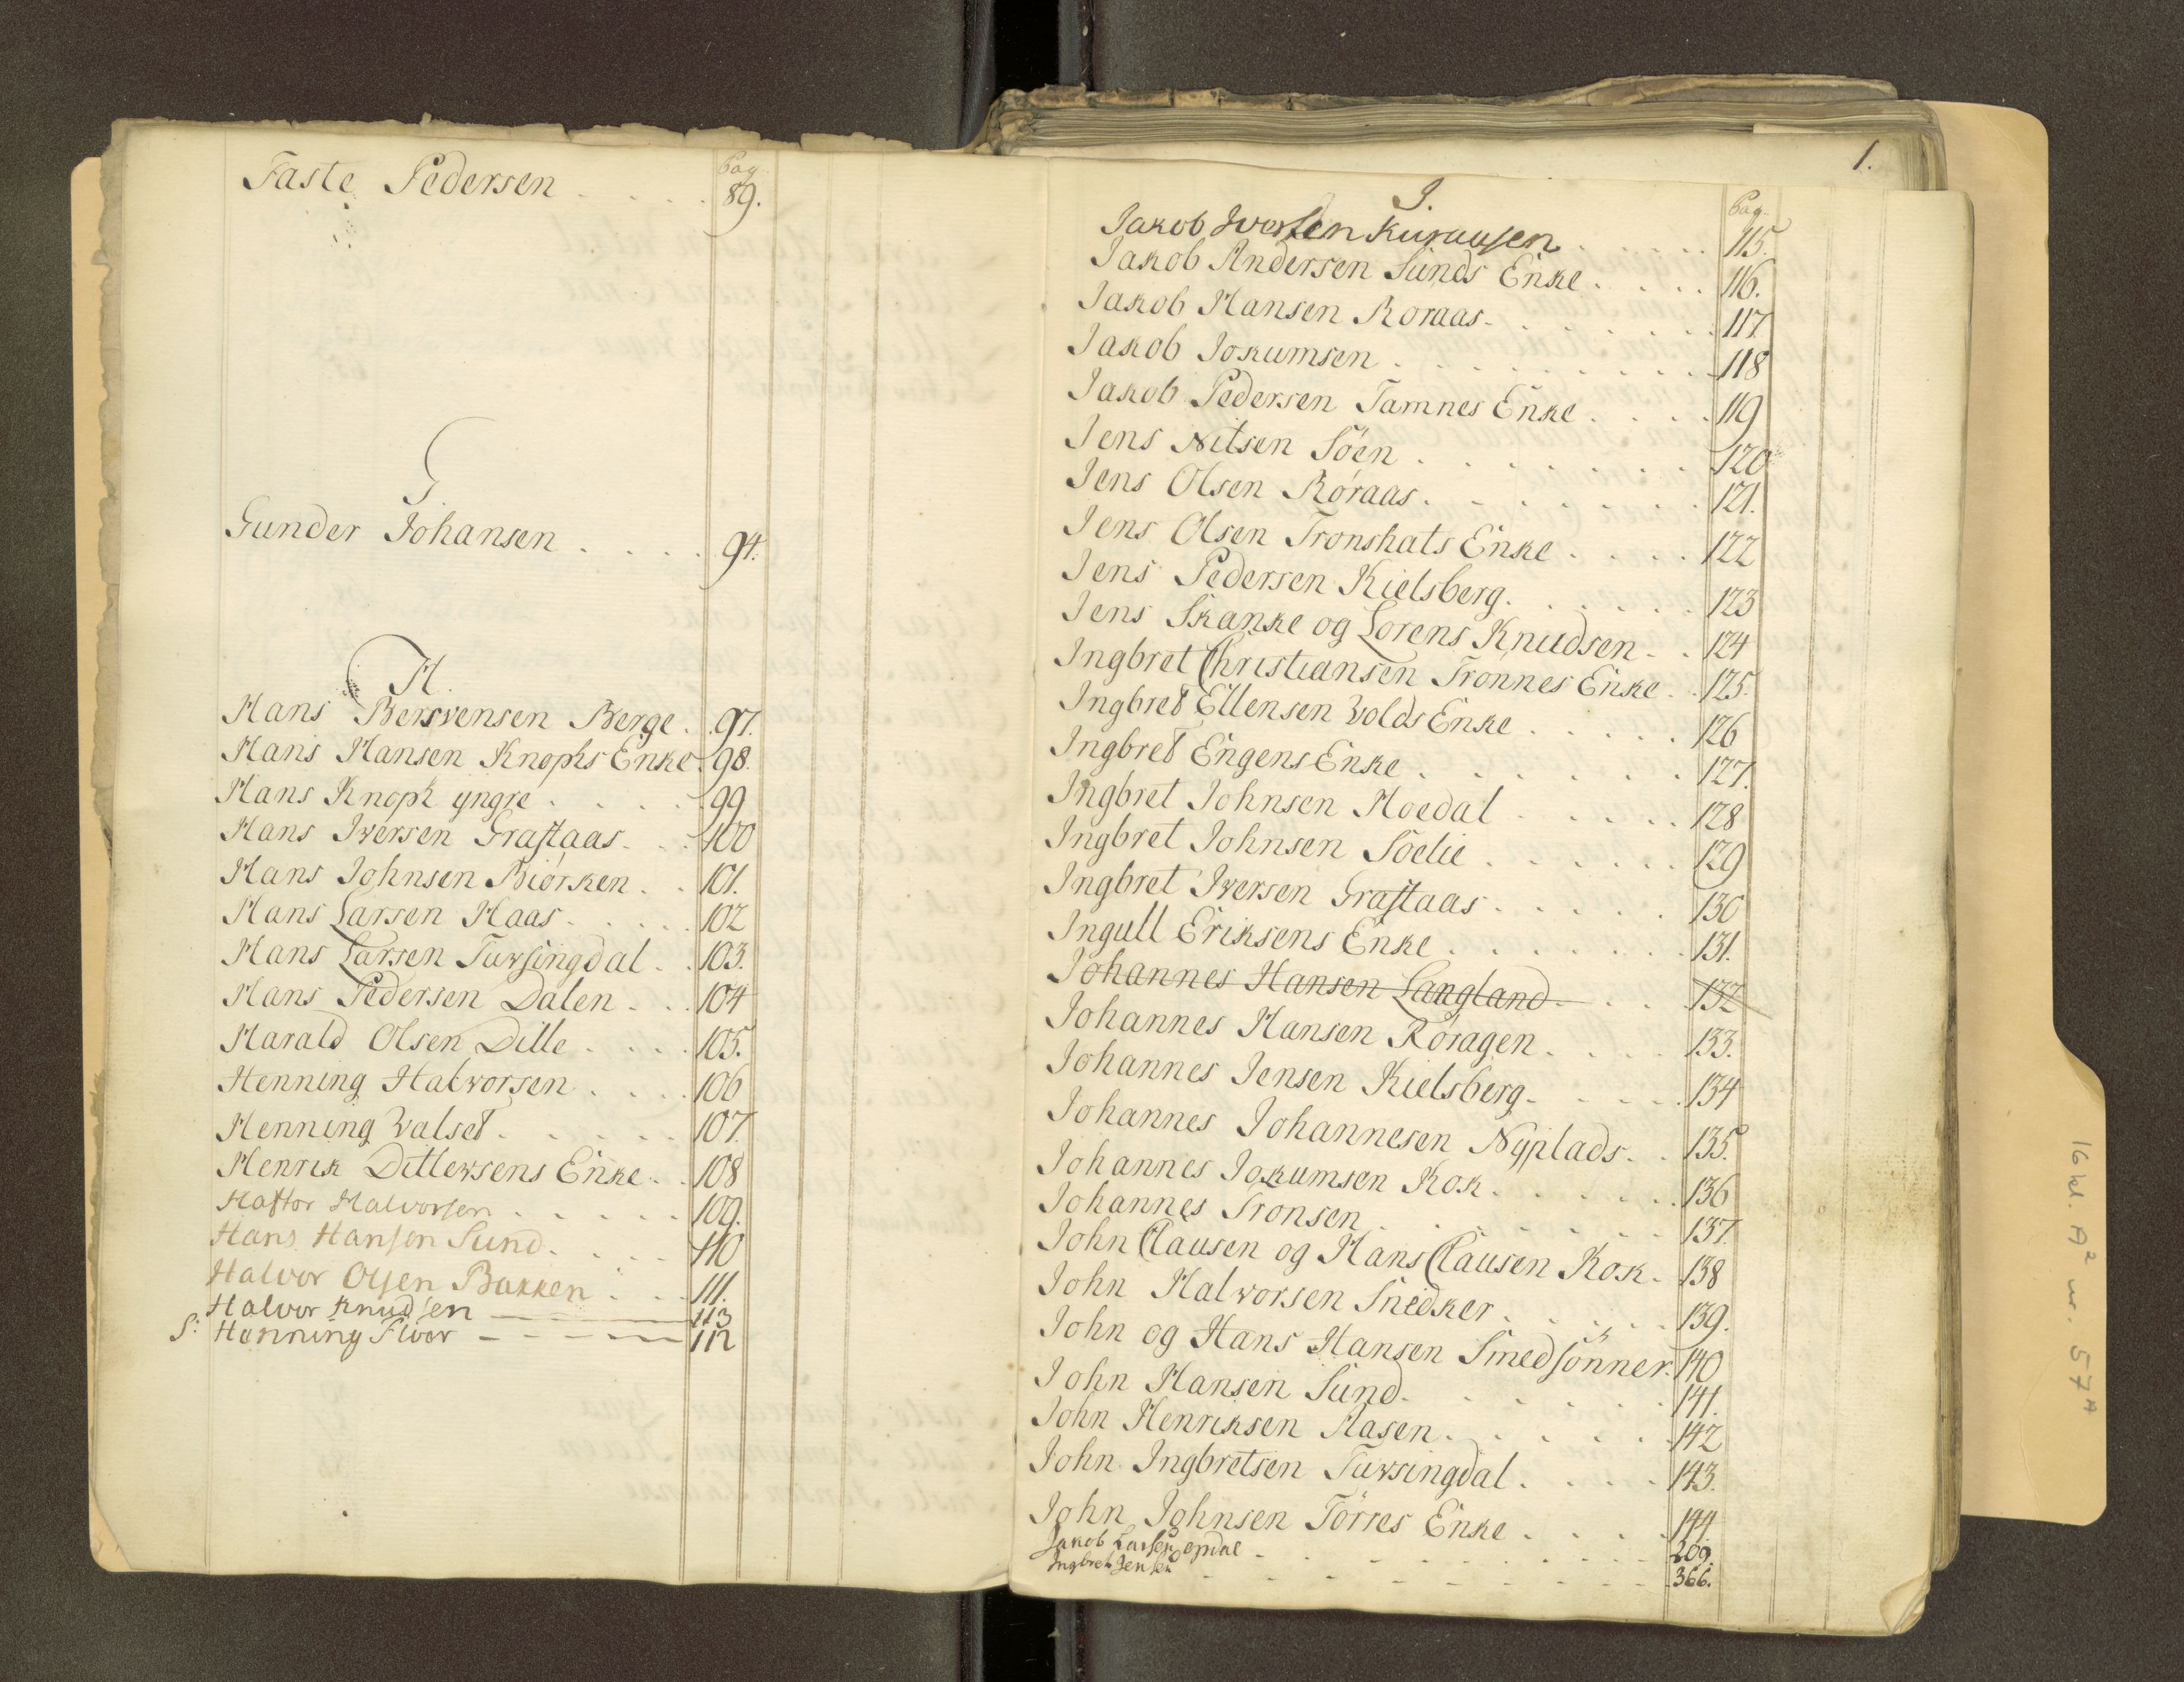 Pag
Faste Pedersen . . . . 89.
G
Gunder Johansen . . . . 94.
H.
Hans Bersvensen Berge . . 97.
Hans Hansen Knophs Enke . 98.
Hans Knoph yngre . . . . 99
Hans Iversen Graftaas . . . 100
Hans Johnsen Biørken . . 101.
Hans Larsen Haas . . . . . 102
Hans Larsen Tufsingdal . . 103.
Hans Pedersen Dalen . . . 104
Harald Olsen Dille . . . . 105.
Henning Halvorsen . . . . 106
Henning Valset . . . . . 107.
Henrik Ditlevsens Enke . . 108
Haftor Halvorsen . . . . . 109.
Hans Hansen Sund . . . . 110
Halvor Olsen Bakken . . . 111.
Halvor Knudsen — — — 113
S: Henning Floor — — — — 112
1.
I.
Pag.
Jakob Iversen Kuraasen . . . . . 115.
Jakob Andersen Sunds Enke . . . . 116.
Jakob Hansen Roraas . . . . . . . 117
Jakob Jokumsen . . . . . . . . . 118
Jakob Pedersen Tamnes Enke . . . . 119
Jens Nilsen Söen . . . . . . . . 120
Jens Olsen Røraas . . . . . . . 121.
Jens Olsen Tronshats Enke . . . . 122
Jens Pedersen Kielsberg . . . . . . 123
Jens Skanke og Lorens Knudsen . . 124
Ingbret Christiansen Trønnes Enke . . 125.
Ingbret Ellensen Volds Enke . . . . . 126
Ingbret Engens Enke . . . . . . . 127.
Ingbret Johnsen Hoedal . . . . . 128
Ingbret Johnsen Söelie . . . . . . 129
Ingbret Iversen Graftaas . . . . . 130
Ingull Eriksens Enke . . . . . . . 131.
Johannes Hansen Langland . . . 132
Johannes Hansen Røragen . . . . 133.
Johannes Jensen Kielsberg . . . . 134
Johannes Johannesen Nyplads . . 135.
Johannes Jokumsen Kok . . . . . . 136
Johannes Tronsen . . . . . . . . 137.
John Clausen og Hans Clausen Kok . 138
John Halvorsen Snedker . . . . . 139.
John og Hans Hansen Smedsønner . 140
John Hansen Sund . . . . . . . 141.
John Henriksen Aasen . . . . . . 142
John Ingbretsen Tufsingdal . . . . 143.
John Johnsen Törres Enke . . . . 144.
Jakob Larsen Opdal . . . . . . . . 209.
Ingbret Jensen . . . . . . . . . 366.
16 kl. A² nr. 57ᴬ